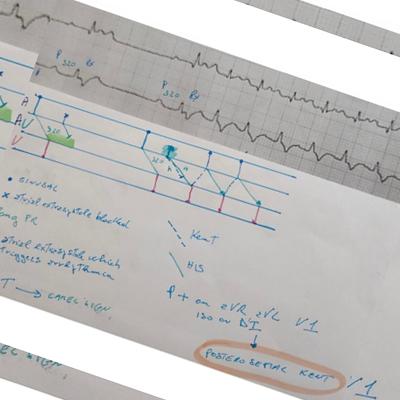 P 320 Rs
P 320 Rs
A
AV
V
320
320
• SINUSAL
x atrial extrasystole blocked
long PR
atrial extrasystole which
triggers arrhythmia
T → CAMEL SIGN
KENT
HIS
P + on aVR aVL V1
ISO on DI
POSTEROSEPTAL KENT
V1
SIGN